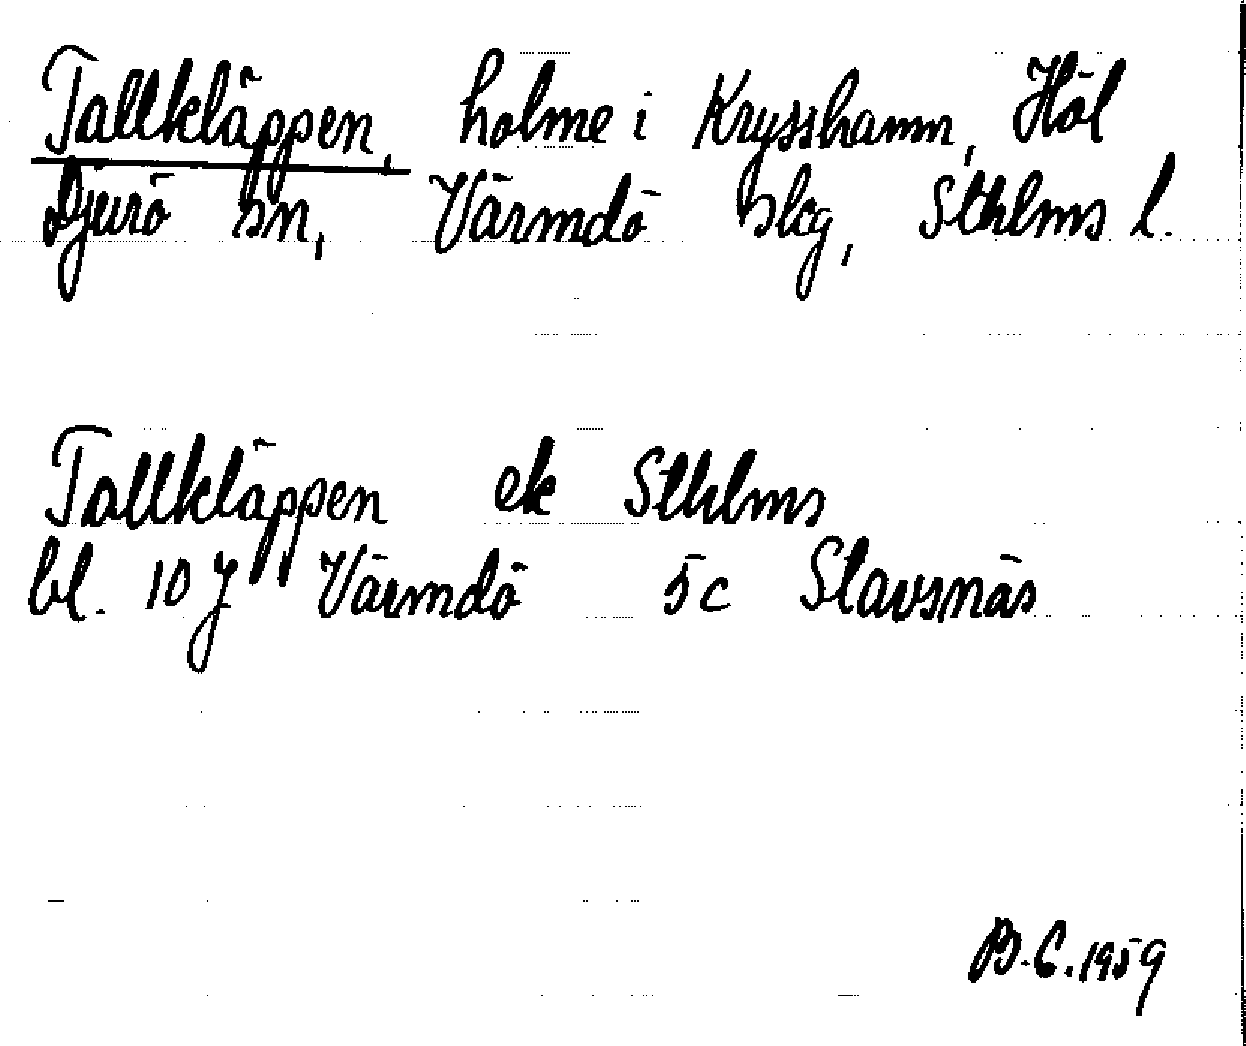 Tallkläppen, holme i Krysshamn, Höl
Djurö sn, Värmdö slog, Sthlms l.
Tallkläppen ek Sthlms
bl. 10 J Värmdö 5c Stavsnäs
B.C. 1959